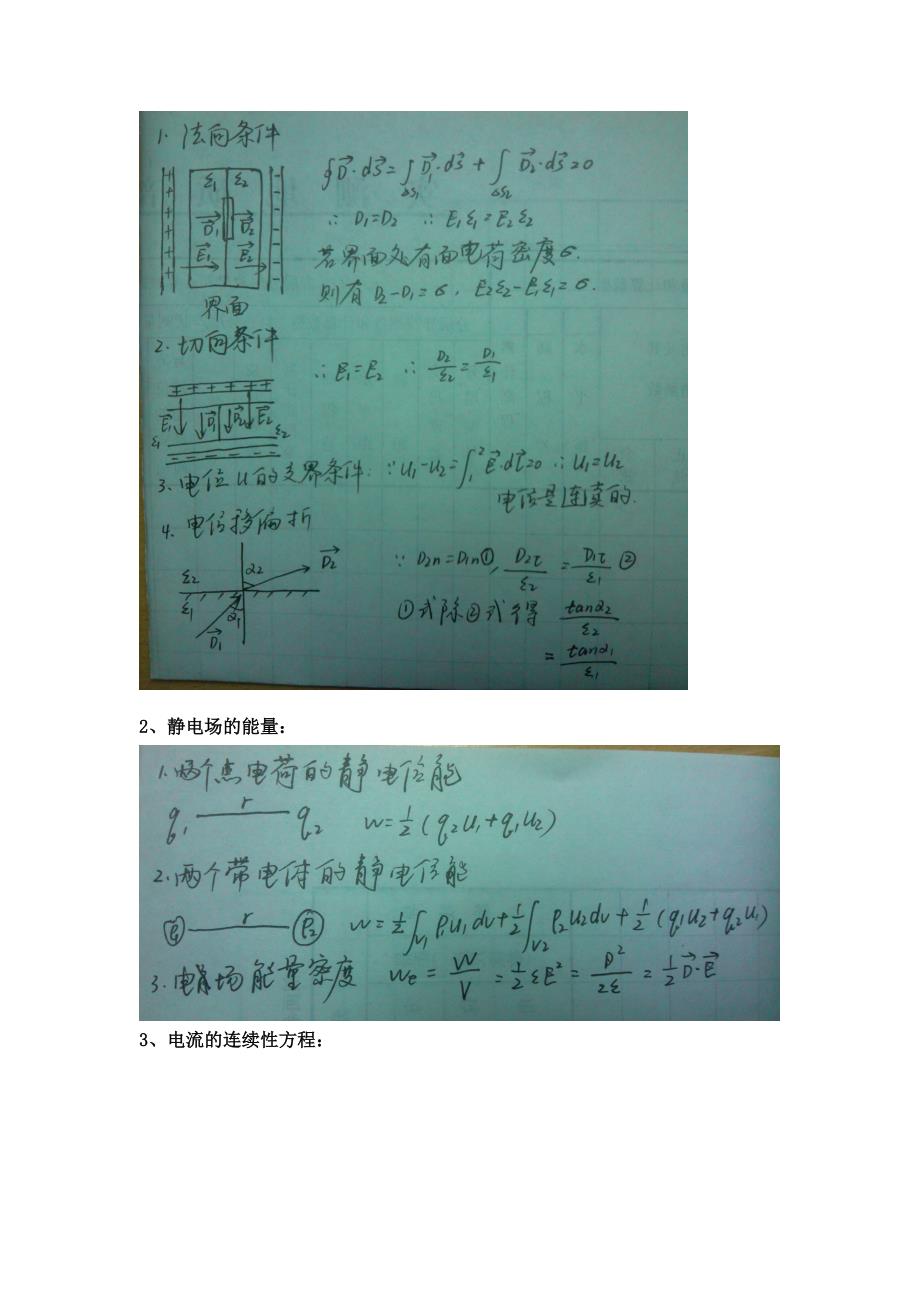 1. 法向条件
∮D⃗·dS⃗=∫D⃗₁·dS⃗ + ∫D⃗₂·dS⃗=0
ΔS₁ ΔS₂
ε₁ ε₂
D⃗₁ D⃗₂
E⃗₁ E⃗₂
界面
∴ D₁=D₂ ∴ E₁ε₁=E₂ε₂
若界面处有面电荷密度σ.
则有 D₂-D₁=σ, E₂ε₂-E₁ε₁=σ.
2. 切向条件
∴E₁=E₂ ∴ D₂/ε₂=D₁/ε₁
+ + + + + +
E⃗₁ D⃗₁ D⃗₂ E⃗₂
ε₁ ε₂
3、电位U的交界条件: ∵U₁-U₂=∫₁²E⃗·dl⃗=0 ∴U₁=U₂
电位是连真的.
4. 电位移偏折
ε₂ α₂ D⃗₂
ε₁ α₁
D⃗₁
∵ D₂n=D₁n①, D₂τ/ε₂ = D₁τ/ε₁ ②
①式除②式得 tanα₂/ε₂
= tanα₁/ε₁
2、静电场的能量：
1.两个点电荷的静电位能
q₁ r q₂ W=½(q₂U₁+q₁U₂)
2.两个带电体的静电位能
ρ₁ r ρ₂ W=½∫V₁ρ₁U₁dv+½∫V₂ρ₂U₂dv+½(q₁U₂+q₂U₁)
3.电场能量密度 We = W/V = ½εE² = D²/2ε = ½D⃗·E⃗
3、电流的连续性方程：